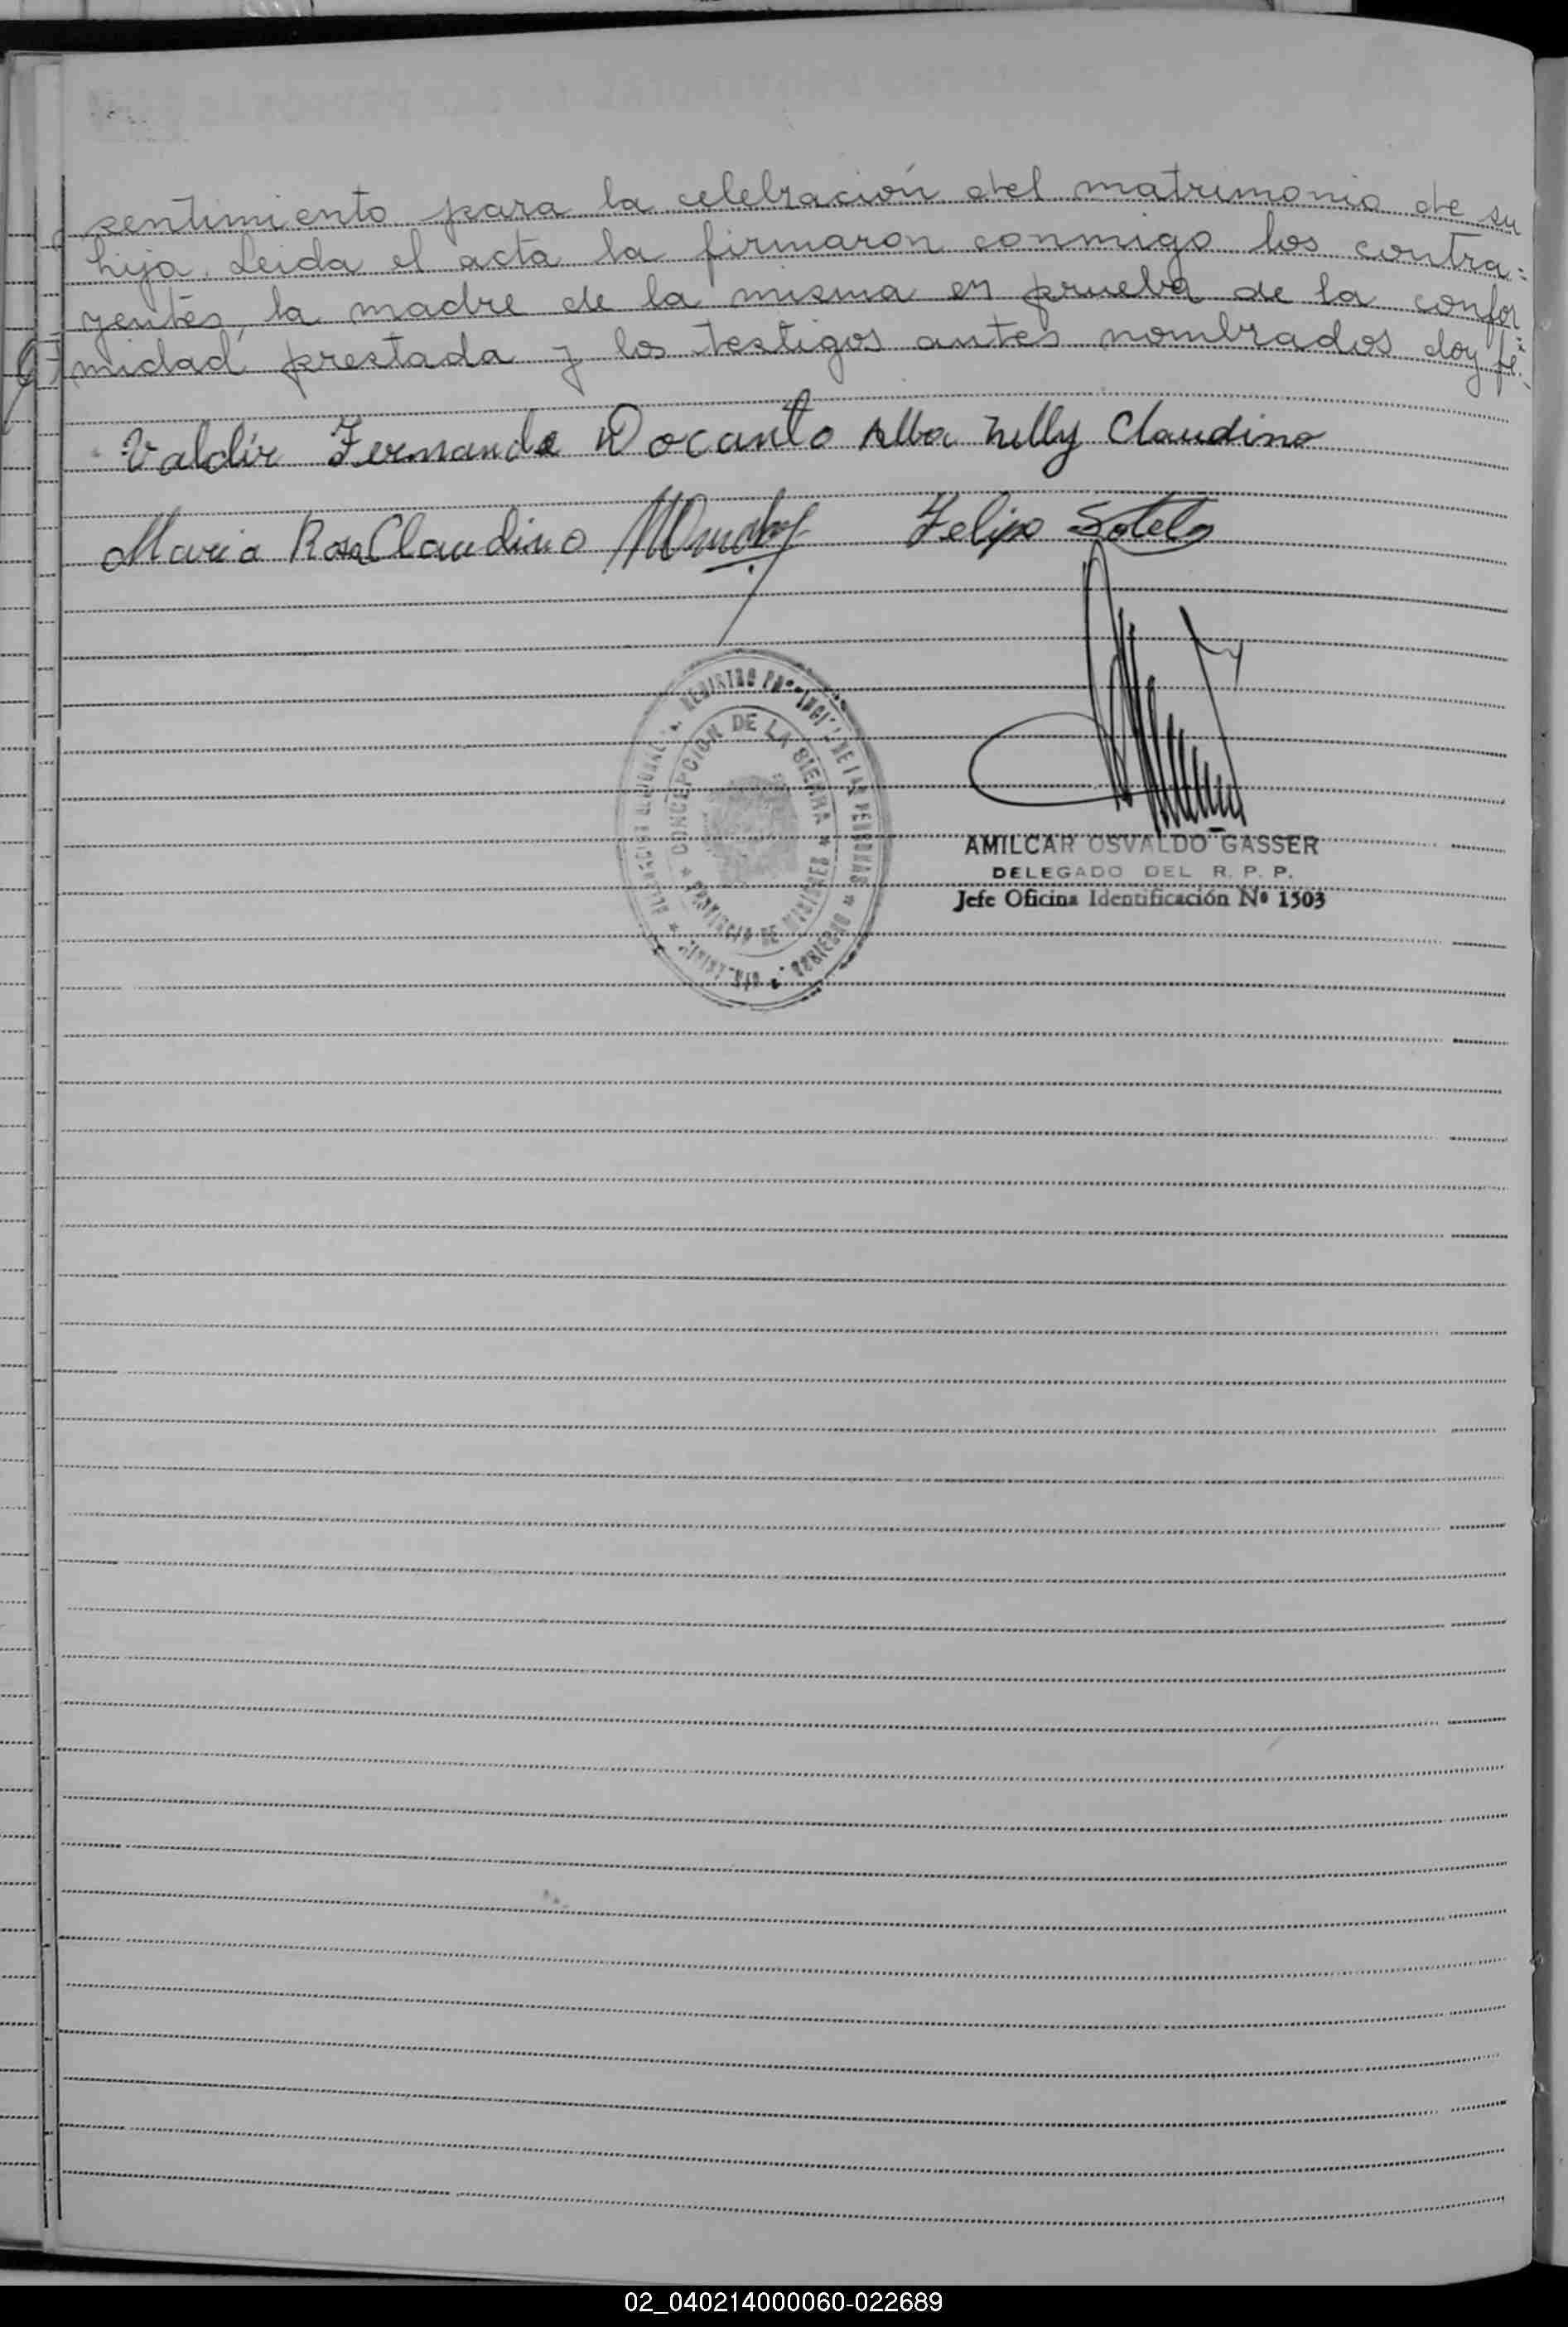 sentimiento para la celebración del matrimonio de su
hija. Leida el acta la firmaron conmigo los contra=
yentes, la madre de la misma en prueba de la confor=
midad prestada y los testigos antes nombrados doy fé.
Valdir Fernande Docanto Alba Nelly Claudino
Maria Rosa Claudino Felipe Sotelo
REGISTRO DE LAS PERSONAS
CONCEPCION DE LA SIERRA * PROVINCIA DE MISIONES *
AMILCAR OSVALDO GASSER
DELEGADO DEL R. P. P.
Jefe Oficina Identificación Nº 1503
02_040214000060-022689